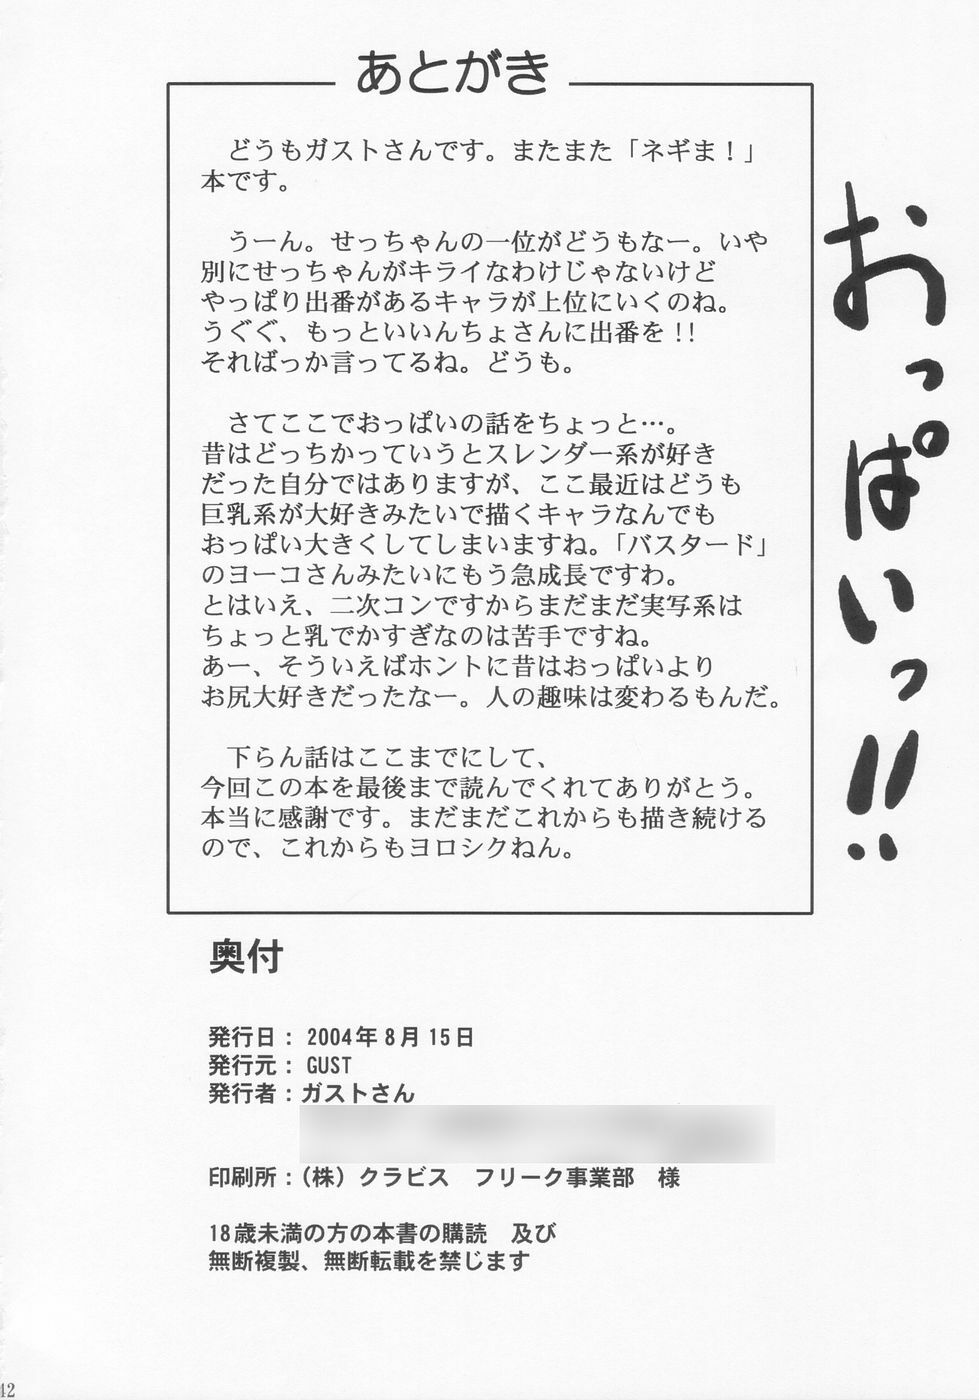 あとがき
どうもガストさんです。またまた「ネギま！」
本です。
うーん。せっちゃんの一位がどうもなー。いや
別にせっちゃんがキライなわけじゃないけど
やっぱり出番があるキャラが上位にいくのね。
うぐぐ、もっといいんちょさんに出番を!!
そればっか言ってるね。どうも。
さてここでおっぱいの話をちょっと…。
昔はどっちかっていうとスレンダー系が好き
だった自分ではありますが、ここ最近はどうも
巨乳系が大好きみたいで描くキャラなんでも
おっぱい大きくしてしまいますね。「バスタード」
のヨーコさんみたいにもう急成長ですわ。
とはいえ、二次コンですからまだまだ実写系は
ちょっと乳でかすぎなのは苦手ですね。
あー、そういえばホントに昔はおっぱいより
お尻大好きだったなー。人の趣味は変わるもんだ。
下らん話はここまでにして、
今回この本を最後まで読んでくれてありがとう。
本当に感謝です。まだまだこれからも描き続ける
ので、これからもヨロシクねん。
おっぱいっ!!
奥付
発行日： 2004年8月15日
発行元： GUST
発行者：ガストさん
印刷所：（株）クラビス　フリーク事業部　様
18歳未満の方の本書の購読　及び
無断複製、無断転載を禁じます
42